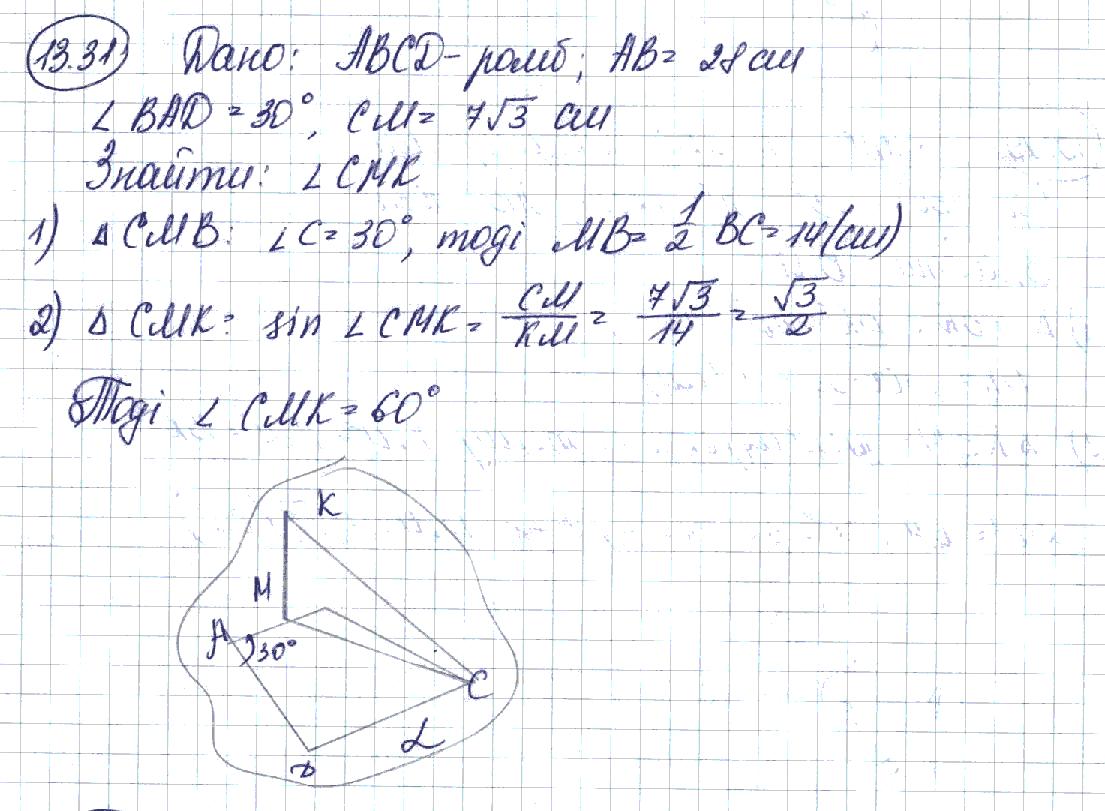 13.31 Дано: ABCD - ромб; AB = 28 см
∠ BAD = 30°, CM = 7√3 см
Знайти: ∠ CMK
1) Δ CMB: ∠C = 30°, тоді MB = 1/2 BC = 14 (см)
2) Δ CMK: sin ∠ CMK = CM/KM = 7√3/14 = √3/2
Тоді ∠ CMK = 60°
K
M
A 30°
C
α
D